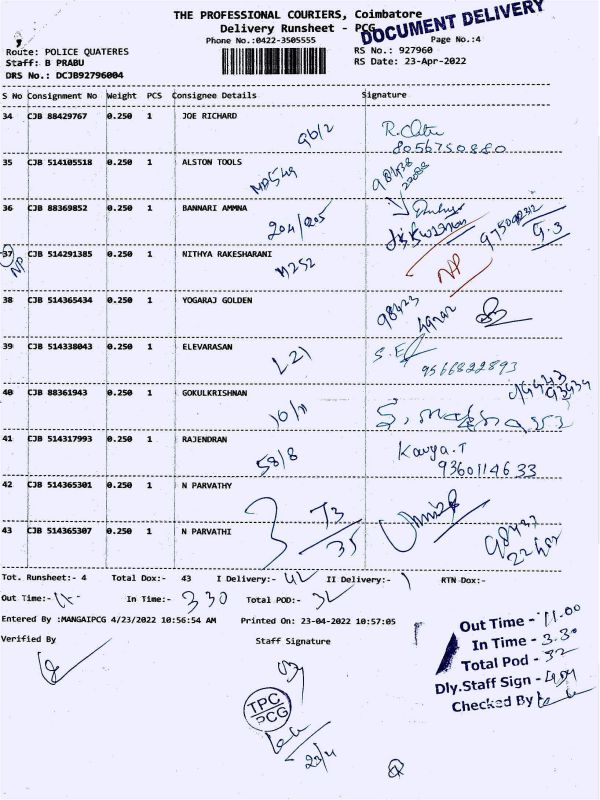 THE PROFESSIONAL COURIERS, Coimbatore
Delivery Runsheet - PCG
DOCUMENT DELIVERY
Phone No.:0422-3505555
Page No.:4
Route: POLICE QUATERES
RS No.: 927960
Staff: B PRABU
RS Date: 23-Apr-2022
DRS No.: DCJB92796004
S No Consignment No Weight PCS Consignee Details Signature
34 CJB 88429767 0.250 1 JOE RICHARD
9b/2
8056750880
35 CJB 514105518 0.250 1 ALSTON TOOLS
98438
22088
36 CJB 88369852 0.250 1 BANNARI AMMNA
204/205
9750912312
G.3
37 CJB 514291385 0.250 1 NITHYA RAKESHARANI
NP
M252
NP
38 CJB 514365434 0.250 1 YOGARAJ GOLDEN
98423
39 CJB 514338043 0.250 1 ELEVARASAN
L21
9566822893
40 CJB 88361943 0.250 1 GOKULKRISHNAN
10/11
41 CJB 514317993 0.250 1 RAJENDRAN
58/8
Kavya.T
9360114633
42 CJB 514365301 0.250 1 N PARVATHY
T3
35
43 CJB 514365307 0.250 1 N PARVATHI
98437
Tot. Runsheet:- 4 Total Dox:- 43 I Delivery:- 42 II Delivery:- 1 RTN Dox:-
Out Time:- 11 In Time:- 3 30 Total POD:- 32
Entered By :MANGAIPCG 4/23/2022 10:56:54 AM Printed On: 23-04-2022 10:57:05
Verified By Staff Signature
Out Time - 11.00
In Time - 3.30
Total Pod - 32
Dly.Staff Sign -
Checked By
TPC
PCG
23/4